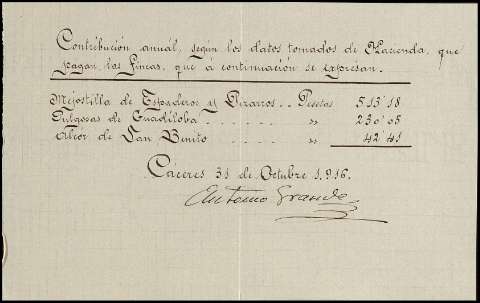 Contribución anuál, según los datos tomados de Hacienda, que
pagan las fincas, que á continuación se expresan.
Mejostilla de Espaderos y Pizarros .. Pesetas 513'18
Pulgosas de Guadiloba . . . . . . „ 230'05
Alcor de San Benito . . . . „ 42'41
Cáceres 31 de Octubre 1.916.
Antonio Grande